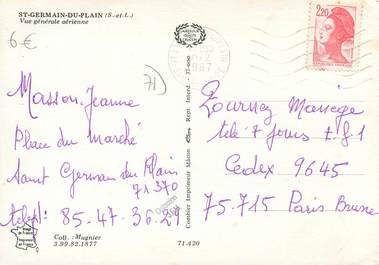 ST-GERMAIN-DU-PLAIN (S.-et-L.)
Vue générale aérienne
6€
71)
2,20
1987
Masson Jeanne
Place du Marché
Saint Germain du Plain
71370
téleph: 85-47-36-29
Combier Imprimeur Mâcon Repr. Interd. - 37-000
Tournez Manège
télé 7 jours t.f.1
Cedex 9645
75.715 Paris Brune
Coll.: Mugnier
3.99.82.1877
71.420